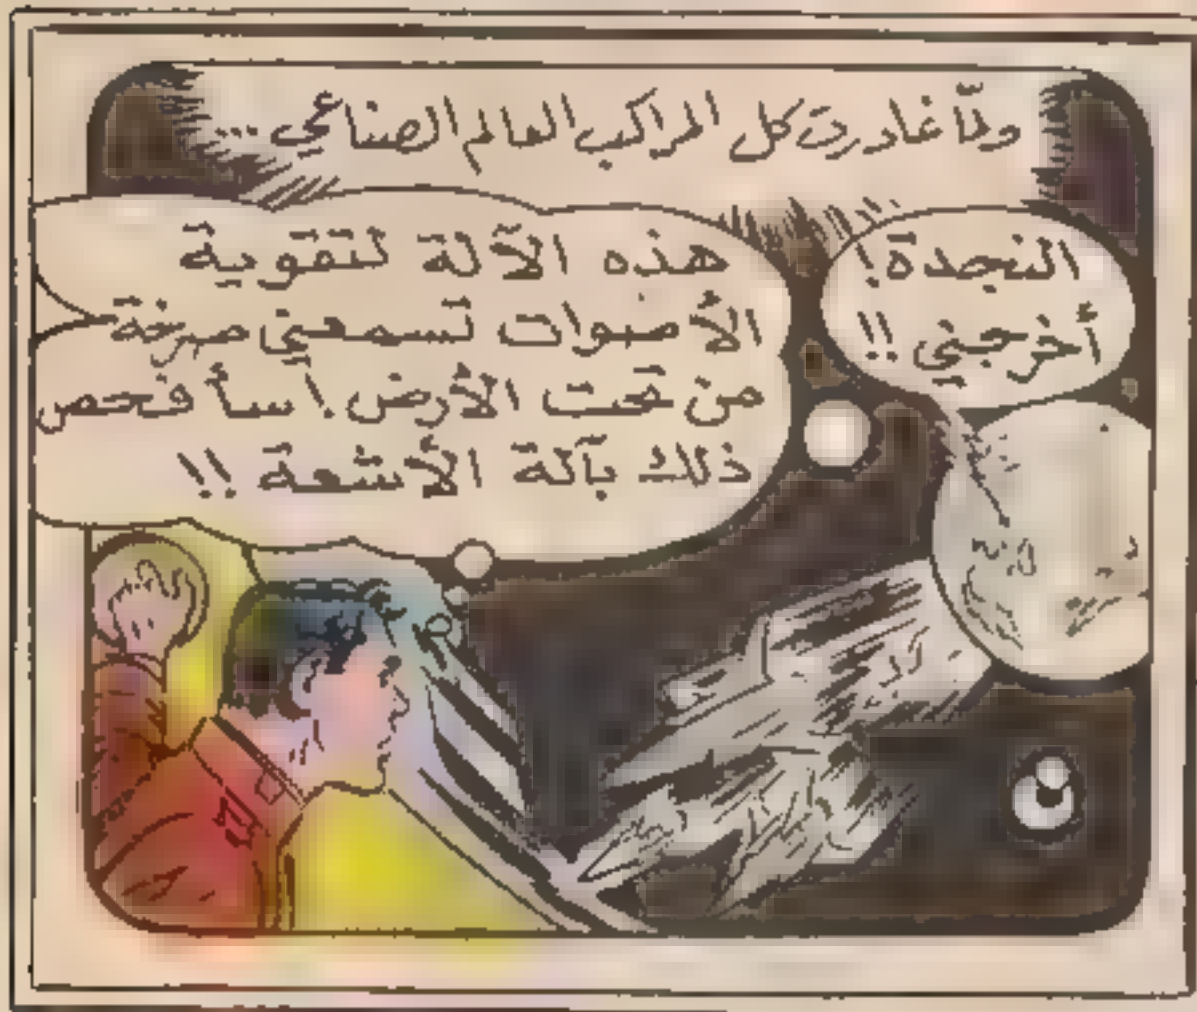 ولمّا غادرت كل المراكب العالم الصناعي ...
النجدة!
أخرجني !!
هذه الآلة لتقوية
الأصوات تسمعني صرخة
من تحت الأرض. سأفحص
ذلك بآلة الأشعة !!